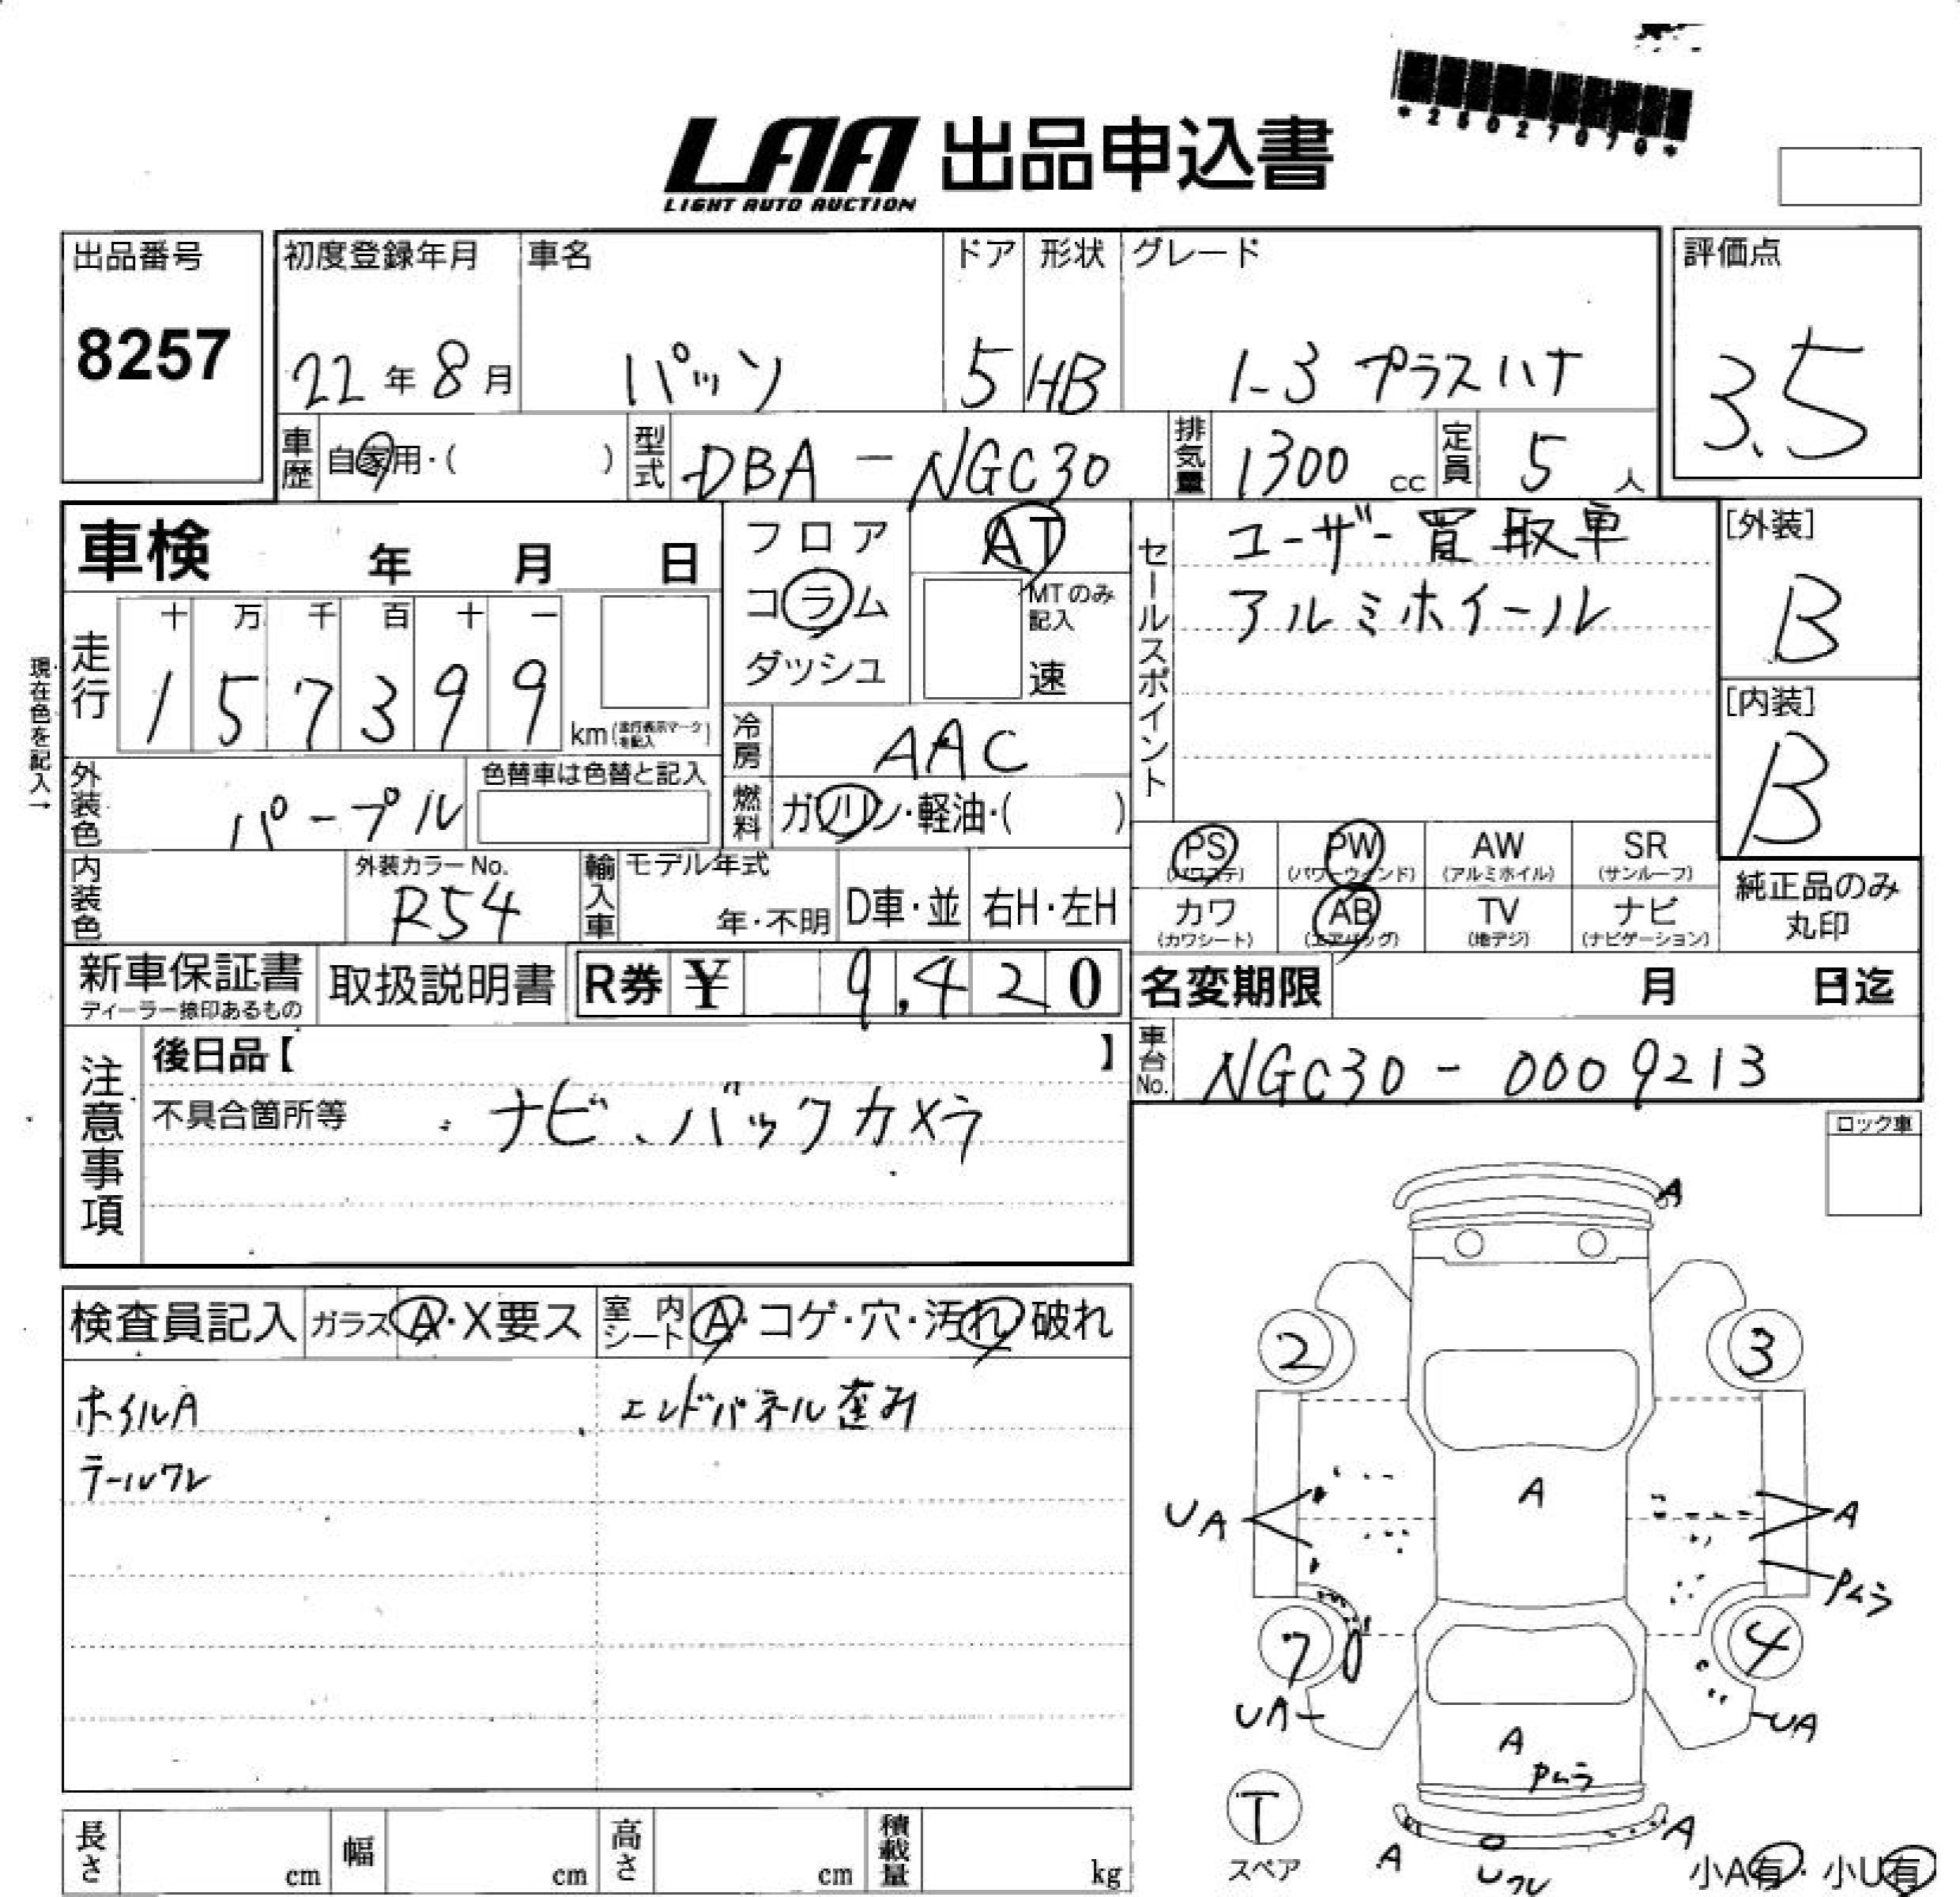 *28027070*
LAA 出品申込書
LIGHT AUTO AUCTION
出品番号 8257
初度登録年月 22年8月
車名 パッソ
ドア 5
形状 HB
グレード 1-3 プラスハナ
評価点 3.5
車歴 自家用・( )
型式 DBA-NGC30
排気量 1300 cc
定員 5 人
車検 年 月 日
フロア
コラム
ダッシュ
AT
MTのみ記入
速
セールスポイント
ユーザー買取車
アルミホイール
[外装] B
[内装] B
現在色を記入→
走行
十 万 千 百 十 一
1 5 7 3 9 9
km(走行表示マークを記入)
冷房 AAC
燃料 ガソリン・軽油・( )
外装色 パープル
色替車は色替と記入
内装色
外装カラーNo. R54
輸入車
モデル年式
年・不明
D車・並
右H・左H
PS (パワステ)
PW (パワーウインド)
AW (アルミホイル)
SR (サンルーフ)
カワ (カワシート)
AB (エアバッグ)
TV (地デジ)
ナビ (ナビゲーション)
純正品のみ
丸印
新車保証書
ディーラー捺印あるもの
取扱説明書
R券 ¥ 9,420
名変期限 月 日迄
車台No. NGC30-0009213
注意事項
後日品【 】
不具合箇所等 ナビ、バックカメラ
ロック車
検査員記入
ガラス A・X要ス
室内シート A・コゲ・穴・汚れ・破れ
ホイルA
エンドパネル歪み
テールワレ
A
2
3
A
UA
A
Pムラ
7
4
UA
UA
A
Pムラ
T
スペア
A
A
Uワレ
小A有・小U有
長さ cm
幅 cm
高さ cm
積載量 kg